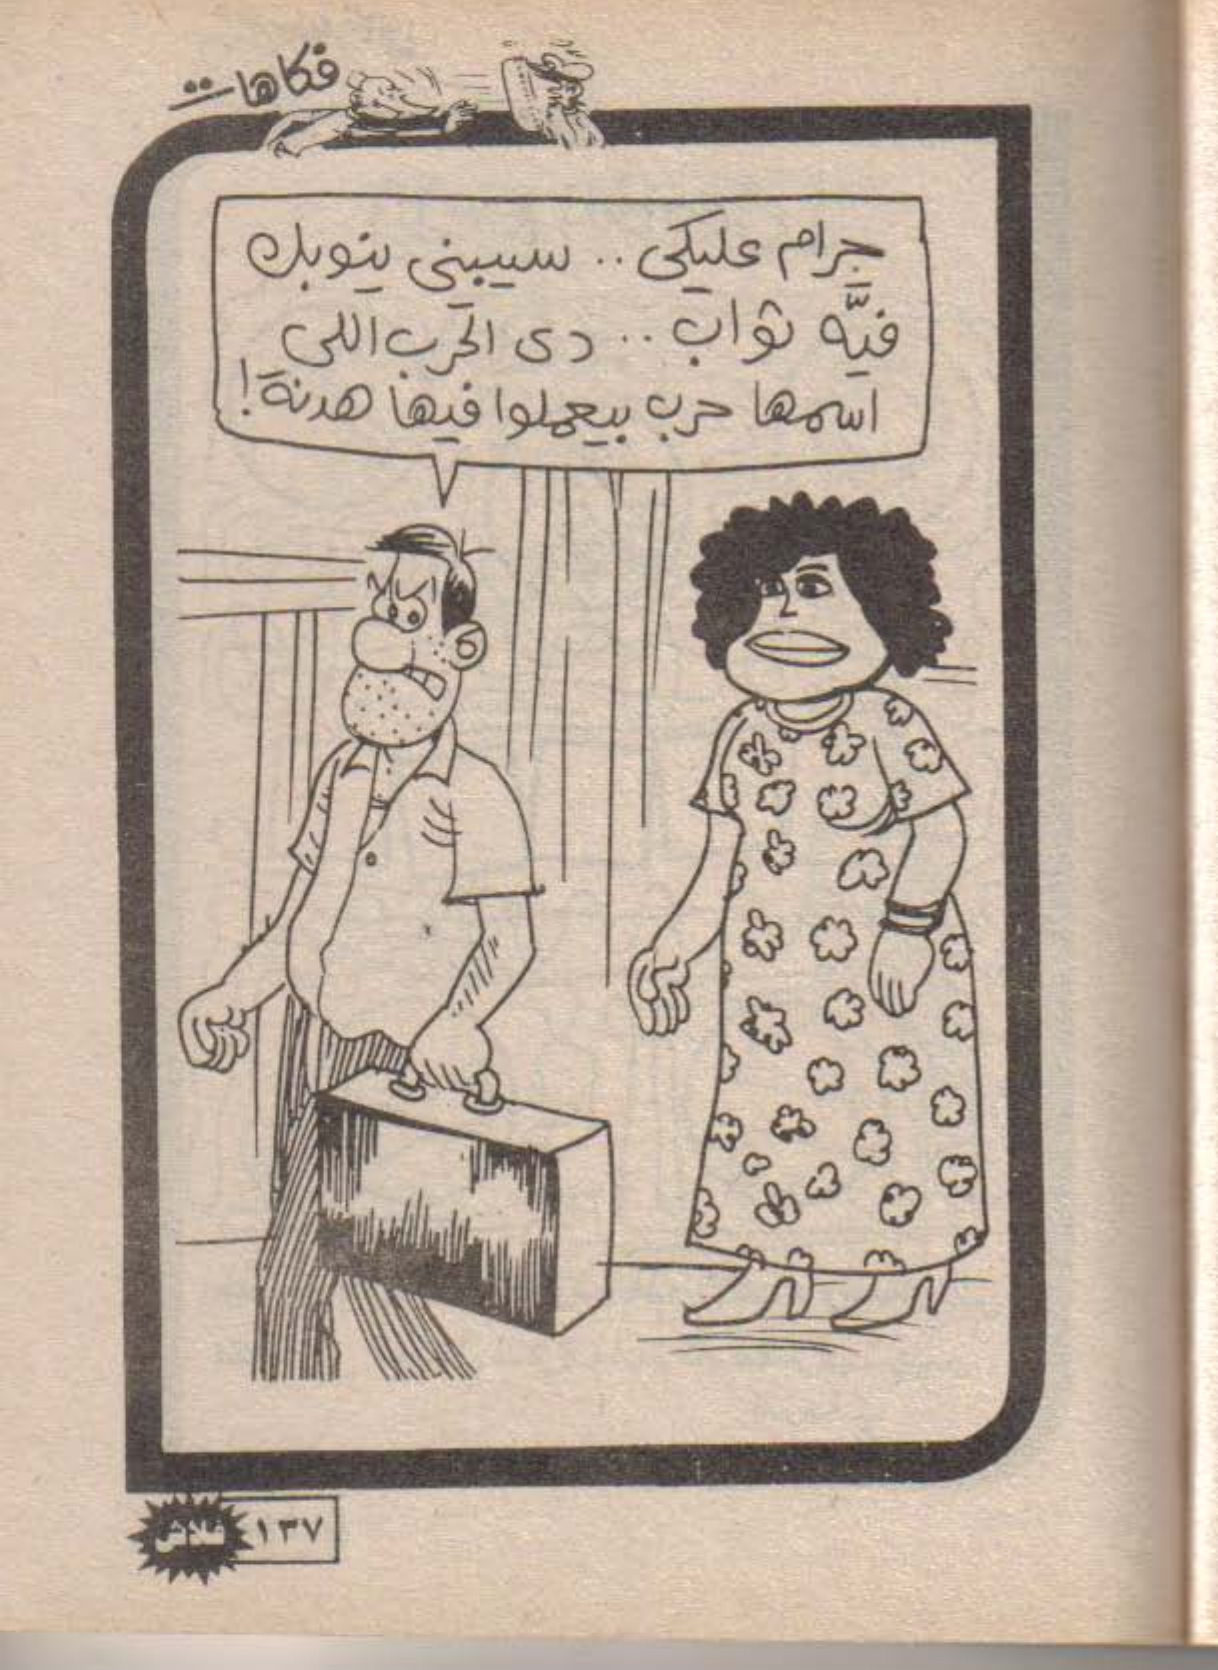 فكاهات
حرام عليكي .. سيبيني ينوبك
فيَّه ثواب .. دى الحرب اللى
اسمها حرب بيعملوا فيها هدنة !
١٣٧
فلاش